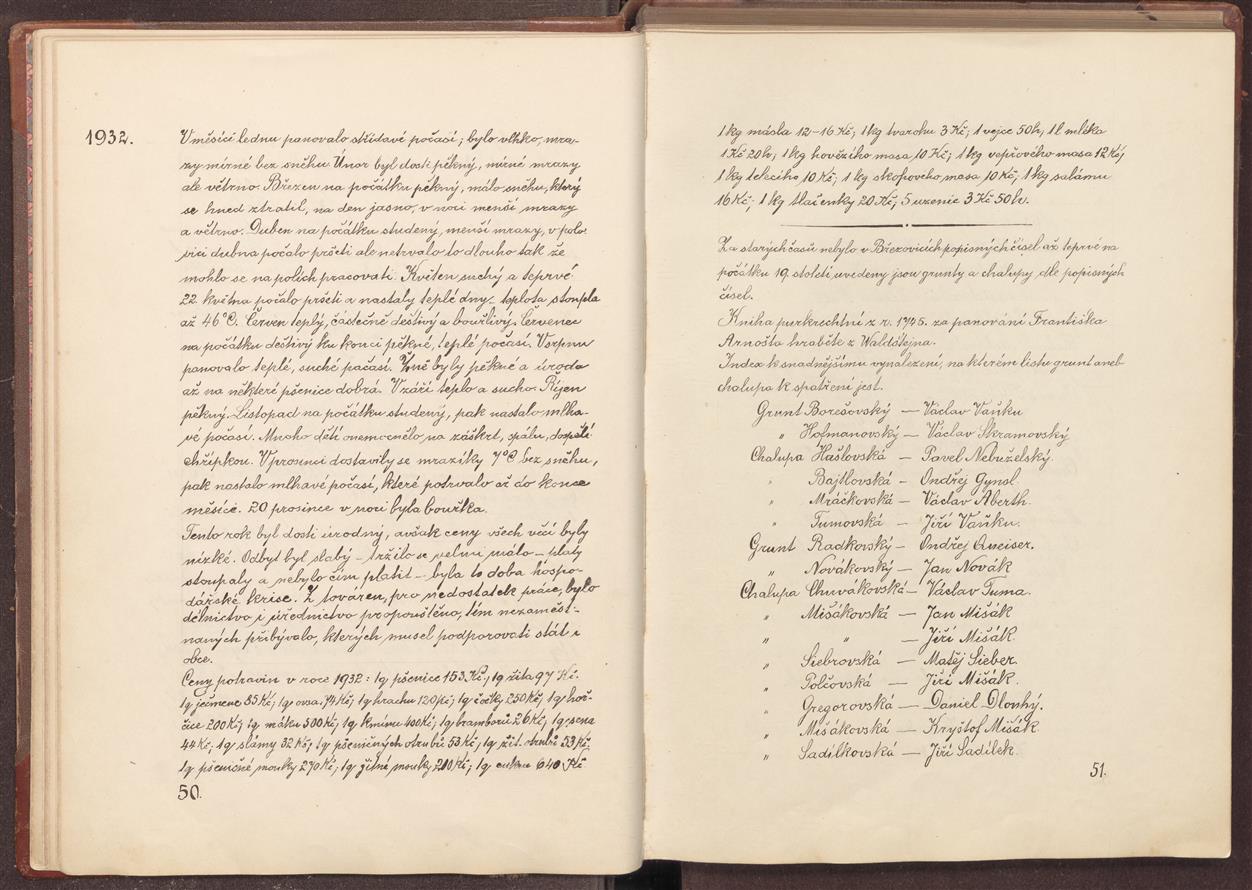 1932.
V měsíci lednu panovalo střídavé počasí; bylo vlhko, mra-
zy mírné bez sněhu. Únor byl dosti pěkný, mírné mrazy
ale větrno. Březen na počátku pěkný, málo sněhu, který
se hned ztratil, na den jasno, v noci menší mrazy
a větrno. Duben na počátku studený, menší mrazy, v polo-
vici dubna počalo pršeti ale netrvalo to dlouho tak že
mohlo se na polích pracovati. Květen suchý a teprvé
22 května počalo pršeti a nastaly teplé dny – teplota stoupla
až 46°C. Červen teplý, částečně deštivý a bouřlivý. Červenec
na počátku deštivý ku konci pěkné, teplé počasí. V srpnu
panovalo teplé, suché počasí. Žně byly pěkné a úroda
až na některé pšenice dobrá. V září teplo a sucho. Říjen
pěkný. Listopad na počátku studený, pak nastalo mlha-
vé počasí. Mnoho dětí onemocnělo na záškrt, spálu, dospělí
chřipkou. V prosinci dostavily se mrazíky 7°C bez sněhu,
pak nastalo mlhavé počasí, které potrvalo až do konce
měsíce. 20 prosince v noci byla bouřka.
Tento rok byl dosti úrodný, avšak ceny všech věcí byly
nízké. Odbyt byl slabý – tržilo se velmi málo – platy
stoupaly a nebylo čím platit – byla to doba hospo-
dářské krise. Z továren, pro nedostatek práce, bylo
dělnictvo i úřednictvo propouštěno, tím nezaměst-
naných přibývalo, kterých musel podporovati stát i
obce.
Ceny potravin v roce 1932: 1q pšenice 153 Kč, 1q žita 97 Kč.
1q ječmene 85 Kč; 1q ovsa 74 Kč; 1q hrachu 120 Kč; 1q čočky 250 Kč; 1q hoř-
čice 200 Kč; 1q máku 500 Kč; 1q kmínu 400 Kč; 1q bramborů 26 Kč; 1q sena
44 Kč; 1q slámy 32 Kč; 1q pšeničných otrubů 53 Kč; 1q žit. otrubů 53 Kč;
1q pšeničné mouky 270 Kč; 1q žitné mouky 210 Kč; 1q cukru 640 Kč
50.
1 kg másla 12–16 Kč; 1 kg tvarohu 3 Kč; 1 vejce 50 h; 1 l mléka
1 Kč 20 h; 1 kg hovězího masa 10 Kč; 1 kg vepřového masa 12 Kč;
1 kg telecího 10 Kč; 1 kg skopového masa 10 Kč; 1 kg salámu
16 Kč; 1 kg tlačenky 20 Kč; 5 uzenic 3 Kč 50 h.
Za starých časů nebylo v Březovicích popisných čísel až teprvé na
počátku 19. století uvedeny jsou grunty a chalupy dle popisných
čísel.
Kniha purkrechtní z r. 1745. za panování Františka
Arnošta hraběte z Waldštejna.
Index k snadnějšímu vynalezení, na kterém listu grunt aneb
chalupa k spatření jest.
Grunt Borešovský – Václav Vaňku
„ Hofmanovský – Václav Skramovský
Chalupa Hašlovská – Pavel Nebuželský.
„ Bajtlovská – Ondřej Gynsl.
„ Mráčkovská – Václav Aberth.
„ Tumovská – Jiří Vaňku.
Grunt Radkovský – Ondřej
„ Novákovský – Jan Novák
Chalupa Chuvákovská – Václav Tuma.
„ Mišákovská – Jan Mišák
„ „ – Jiří Mišák.
„ Siebrovská – Matěj Sieber.
„ Polčovská – Jiří Mišák.
„ Gregorovská – Daniel Dlouhý.
„ Mišákovská – Kryštof Mišák.
„ Sadílkovská – Jiří Sadílek.
51.